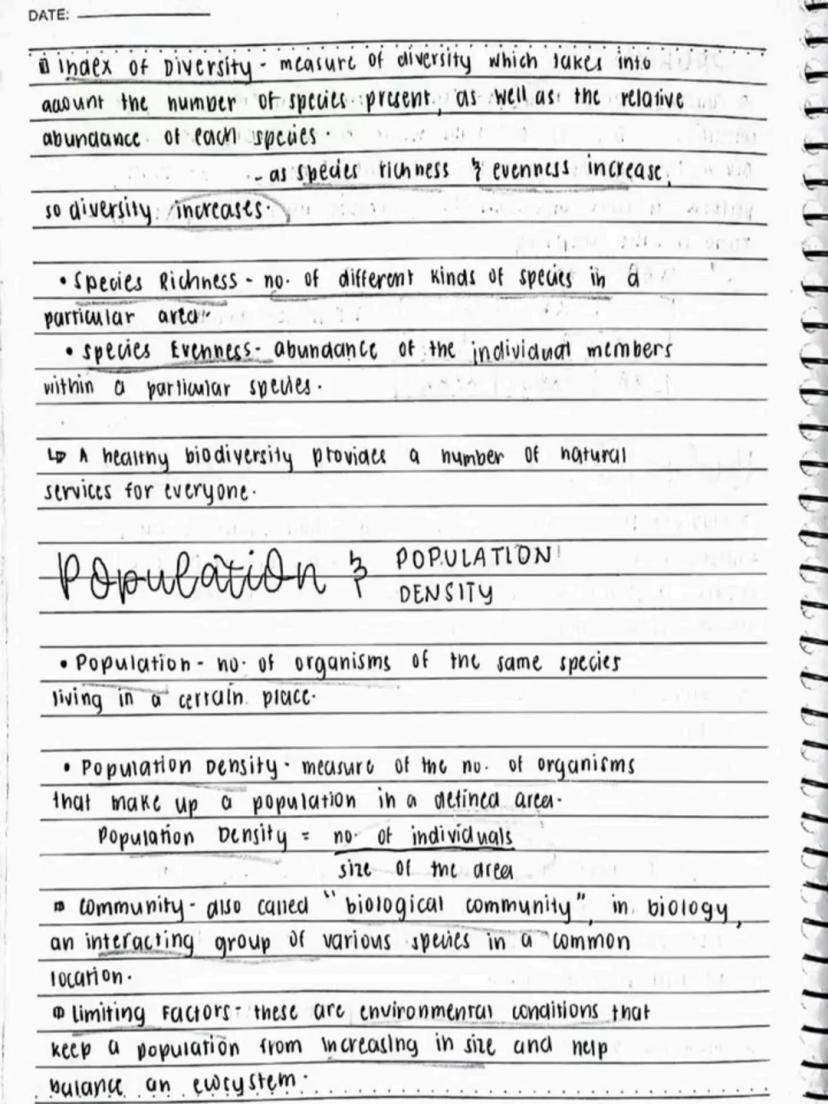 DATE:
Index of Diversity - measure of diversity which takes into
account the number of species present, as well as the relative
abundance of each species.
- as species richness & evenness increase,
so diversity increases.
• Species Richness - no. of different kinds of species in a
particular area.
• Species Evenness - abundance of the individual members
within a particular species.
↳ A healthy biodiversity provides a number of natural
services for everyone.
Population & POPULATION
DENSITY
• Population - no. of organisms of the same species
living in a certain place.
• Population Density - measure of the no. of organisms
that make up a population in a defined area.
Population Density = no. of individuals
size of the area
Community - also called "biological community", in biology,
an interacting group of various species in a common
location.
Limiting Factors - these are environmental conditions that
keep a population from increasing in size and help
balance an ecosystem.